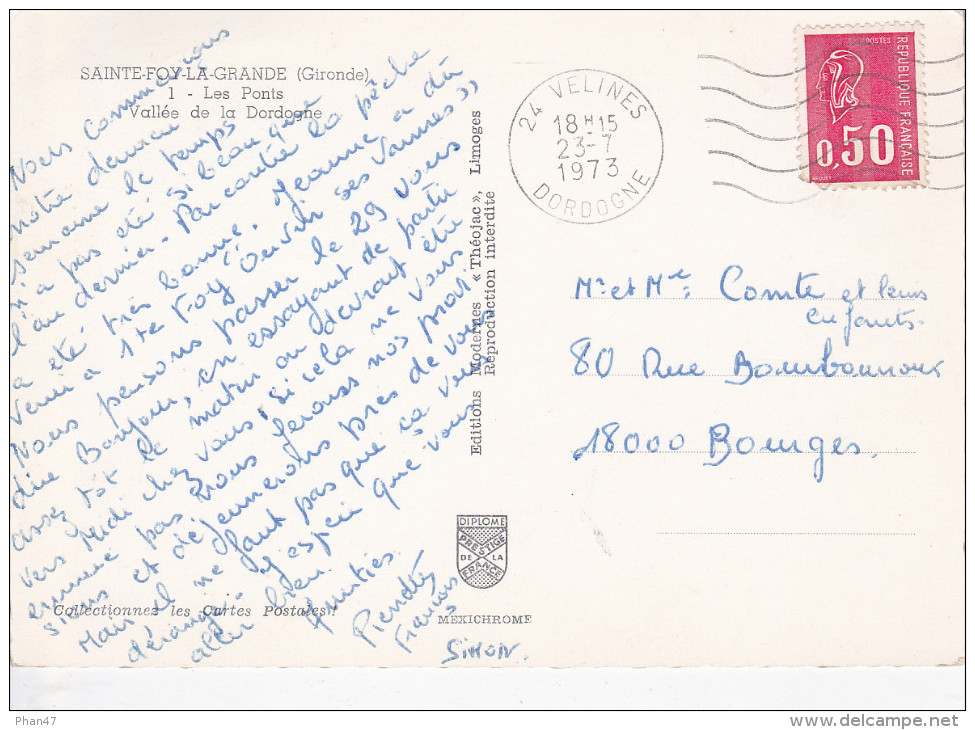 SAINTE-FOY-LA-GRANDE (Gironde)
1 - Les Ponts
Vallée de la Dordogne
Nous commençons
notre dernière
semaine le temps
n'a pas été si beau que
l'an dernier. Par contre la pêche
a été très bonne. Jeanne a dû
venir à Ste Foy ouvrir ses vannes"
Nous pensons passer le 29 vous
dire Bonjour, en essayant de partir
assez tôt le matin on devrait être
vers Midi chez vous, si cela ne vous
ennuie pas nous ferons nos provi
sions et déjeunerons près de vous.
Mais il ne faut pas que ça vous
dérange. J'espère que vous
aller bien.
Amitiés
François
SIMON.
Editions Modernes «Théojac», Limoges
Reproduction interdite
24 VELINES
18H15
23-7
1973
DORDOGNE
POSTES
REPUBLIQUE FRANÇAISE
0,50
Mr et Me Comte et leurs
enfants.
80 Rue Bourbonnoux
18000 Bourges.
DIPLOME
PRESTIGE
DE LA
FRANCE
Collectionnez les Cartes Postales !
MEXICHROME
Phan47
www.delcampe.net